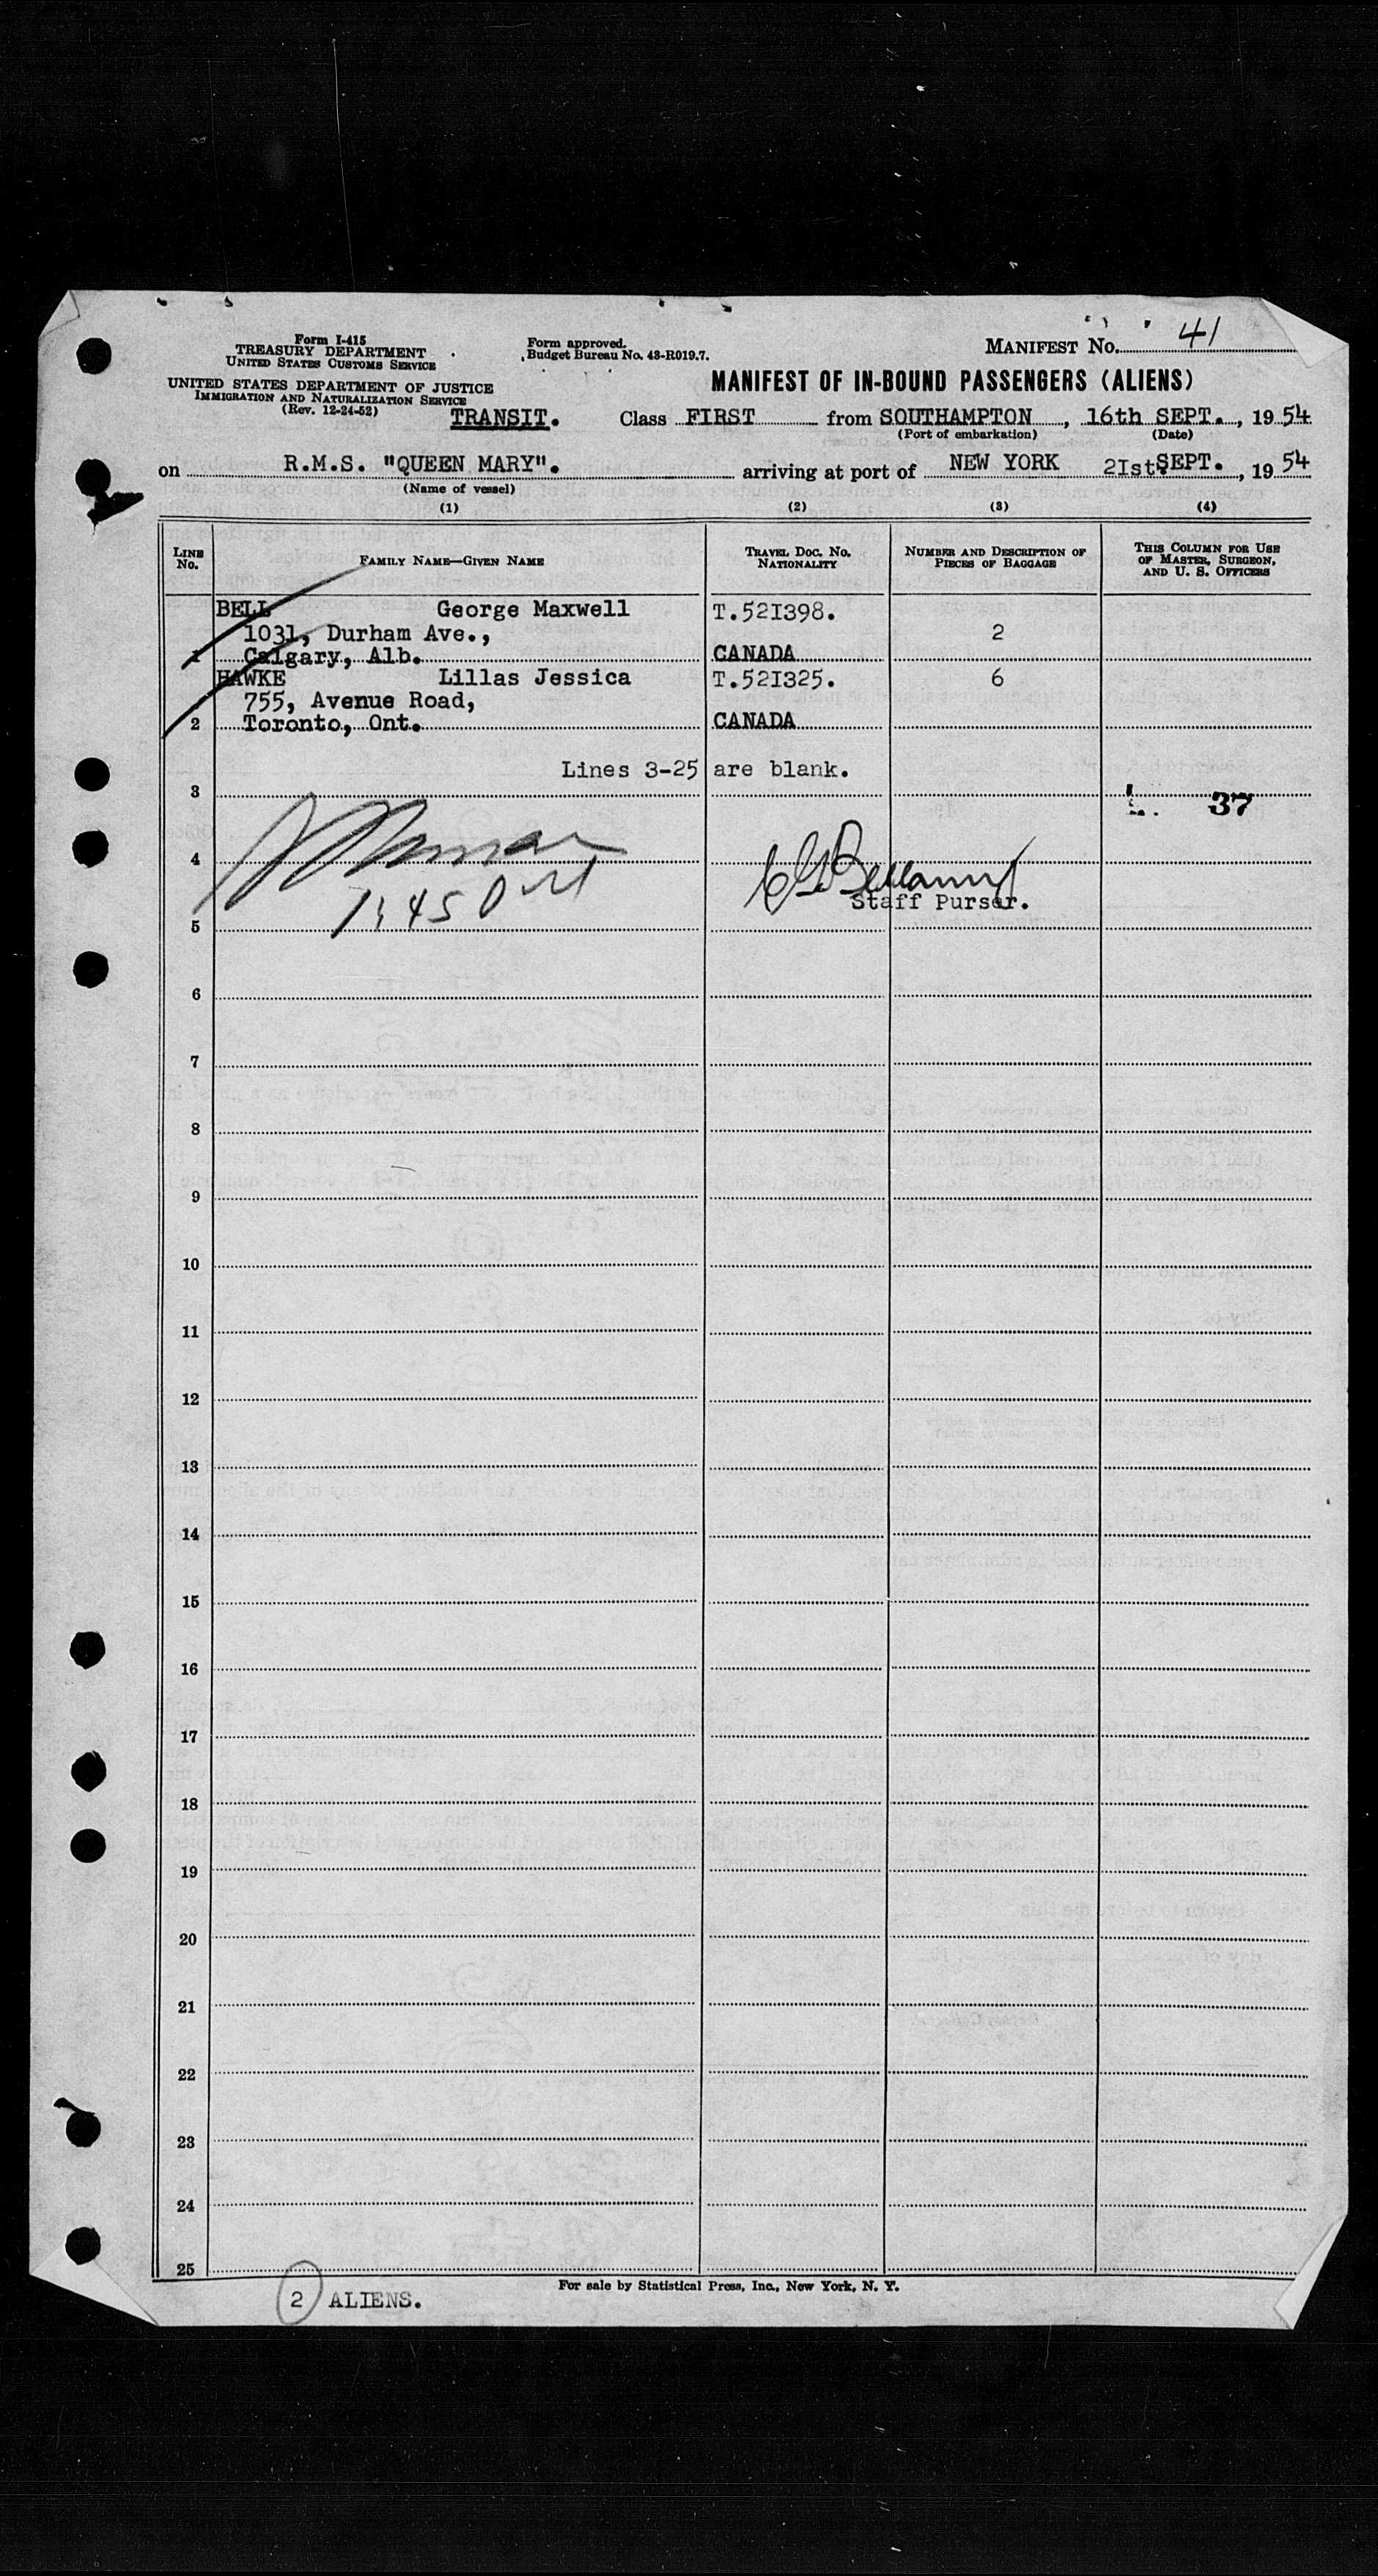 Form I-415
TREASURY DEPARTMENT
UNITED STATES CUSTOMS SERVICE
UNITED STATES DEPARTMENT OF JUSTICE
IMMIGRATION AND NATURALIZATION SERVICE
(Rev. 12-24-52)
Form approved.
Budget Bureau No. 43-R019.7.
MANIFEST NO. 41
MANIFEST OF IN-BOUND PASSENGERS (ALIENS)
TRANSIT. Class FIRST from SOUTHAMPTON, 16th SEPT., 1954
(Port of embarkation) (Date)
on R.M.S. "QUEEN MARY". arriving at port of NEW YORK 2Ist SEPT., 1954
(Name of vessel)
(1) (2) (3) (4)
LINE NO. FAMILY NAME—GIVEN NAME TRAVEL DOC. NO. NATIONALITY NUMBER AND DESCRIPTION OF PIECES OF BAGGAGE THIS COLUMN FOR USE OF MASTER, SURGEON, AND U. S. OFFICERS
BELL George Maxwell T.52I398.
1031, Durham Ave., 2
1 Calgary, Alb. CANADA
HAWKE Lillas Jessica T.52I325. 6
755, Avenue Road,
2 Toronto, Ont. CANADA
Lines 3-25 are blank.
3
37
4
C G Bellamy
Staff Purser.
5
6
7
8
9
10
11
12
13
14
15
16
17
18
19
20
21
22
23
24
25
For sale by Statistical Press, Inc., New York, N. Y.
2 ALIENS.